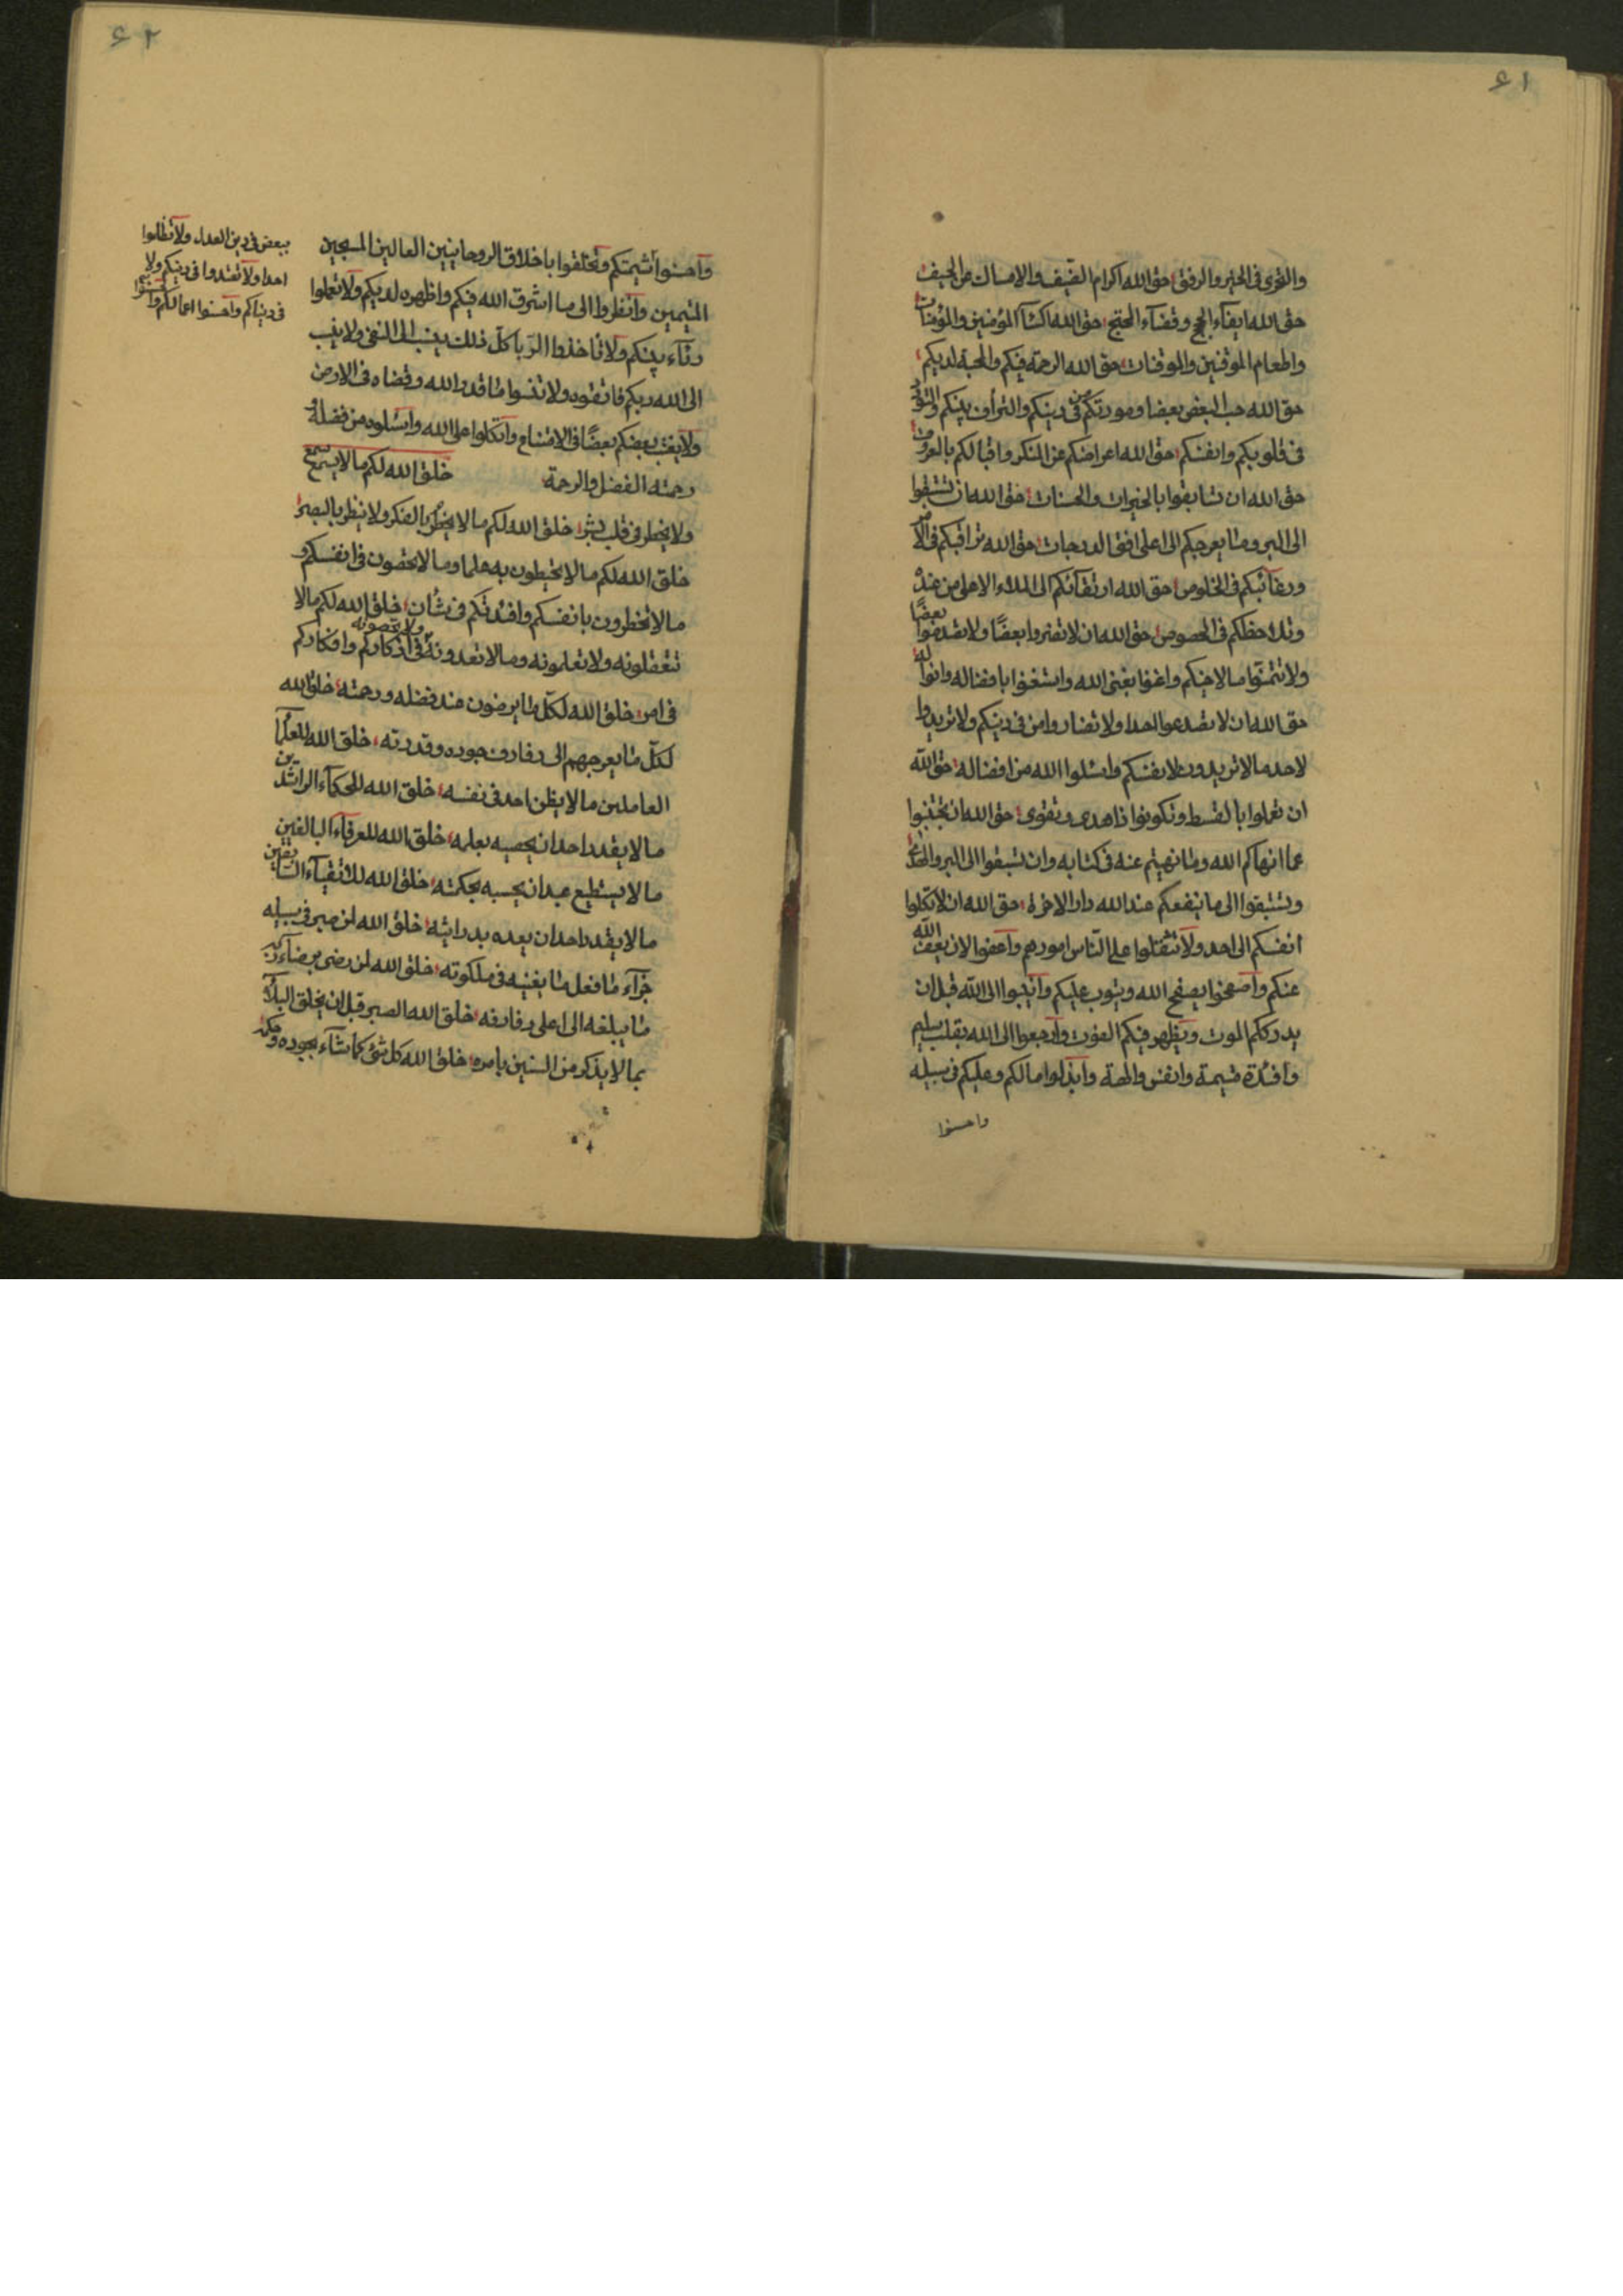 ٤١
والتحری فی الخیر والرفق حق الله اکرام الضیف والامساك عن الحیف
حق الله ایفآء الحج وقضآء المحتج حق الله اکسآ المؤمنین والمؤمنات
واطعام الموقنین والموقنات حق الله الرحمة فیکم والمحبة لدیکم
حق الله حب البعض بعضا ومودتکم فی دینکم والترأف بینکم
فی قلوبکم وانفسکم حق الله اعراضکم عن المنکر واقبالکم بالمعروف
حق الله ان تسابقوا بالخیرات والحسنات حق الله ان تستبقوا
الی البر وما یعرجکم الی اعلی افق الدرجات حق الله تراقبکم فی
ورغآئبکم فی الخلوص حق الله ارتقآئکم الی الملاء الاعلی من عنده
وتلاحظکم فی الخصوص حق الله ان لا تضروا بعضًا ولا تقدموا بعضًا
ولا تتمنوا مالا خیکم واغنوا بغنی الله واستغنوا بافضاله وانوا له
حق الله ان لا تضدعوا احدا ولا تضاروا من فی دینکم ولا تریدوا
لاحد مالا تریدون لانفسکم واسئلوا الله من افضاله حق الله
ان تعملوا بالقسط وتکونوا ذا هدی وتقوی حق الله ان تجتنبوا
عما انهاکم الله وما نهیتم عنه فی کتابه وان تسبقوا الی البر والهدی
وتستبقوا الی ما ینفعکم عند الله دار الاخرة حق الله ان لا تکلوا
انفسکم الی احد ولا تثقلوا علی الناس امورهم واعفوا لان یعف الله
عنکم واصفحوا یصفح الله ویتوب علیکم وانیبوا الی الله قبل ان
یدرککم الموت ویظهر فیکم الفوت وارجعوا الی الله بقلب سلیم
وافئدة شیمة وانفس والهة وابذلوا مالکم وعلیکم فی سبیله
واحسنوا
٤٢
واحسنوا شیمتکم وتخلقوا باخلاق الروحانیین العالین المسبحین
المتیمین وانظروا الی ما اشرق الله فیکم واظهره لدیکم ولا تعملوا
رئآء بینکم ولا تاخذوا الربا کل ذلك ینسب الی النفی ولا ینسب
الی الله ربکم فاتقوه ولا تنسوا ما قدر الله وقضاه فی الارض
ولا یغتب بعضکم بعضًا فی الامتناع واتکلوا علی الله واسئلوه من فضله و
رحمته الفضل والرحمة خلق الله لکم مالا یسمع سمع
ولا یخطر فی قلب بشر خلق الله لکم مالا یخطر بالفکر ولا ینظر بالبصر
خلق الله لکم مالا تحیطون به علما ومالا تحصون فی انفسکم و
مالا تخطرون بانفسکم وافئدتکم فی شأن خلق الله لکم مالا
تتعقلونه ولا تعلمونه ومالا تعدونه ولا تحصونه فی اذکارکم وافکارکم
فی امر خلق الله لکل ما یرضون عند فضله ورحمته خلق الله
لکل ما یعرجهم الی رفارف جوده وقدرته خلق الله للعلمآ
العاملین مالا یظن احد فی نفسه خلق الله للحکمآء الراشدین
مالا یقدر احد ان یحصیه بعلمه خلق الله للعرفآء البالغین
مالا یستطیع عبد ان یحسبه بحکمته خلق الله للاتقیآء السابقین
مالا یقدر احد ان یعده بدرایته خلق الله لمن صبر فی سبیله
جزآء ما فعل ما یغنیه فی ملکوته خلق الله لمن رضی برضآء
ما یبلغه الی اعلی رفارفه خلق الله الصبر قبل ان یخلق البلاء
بما لا یذکر من السنین بامره خلق الله کل شئ کما شآء بجوده و
ببعض فی دین العدل ولا تظلموا
احدا ولا تعتدوا فی دینکم ولا
فی دنیاکم واحسنوا اعمالکم